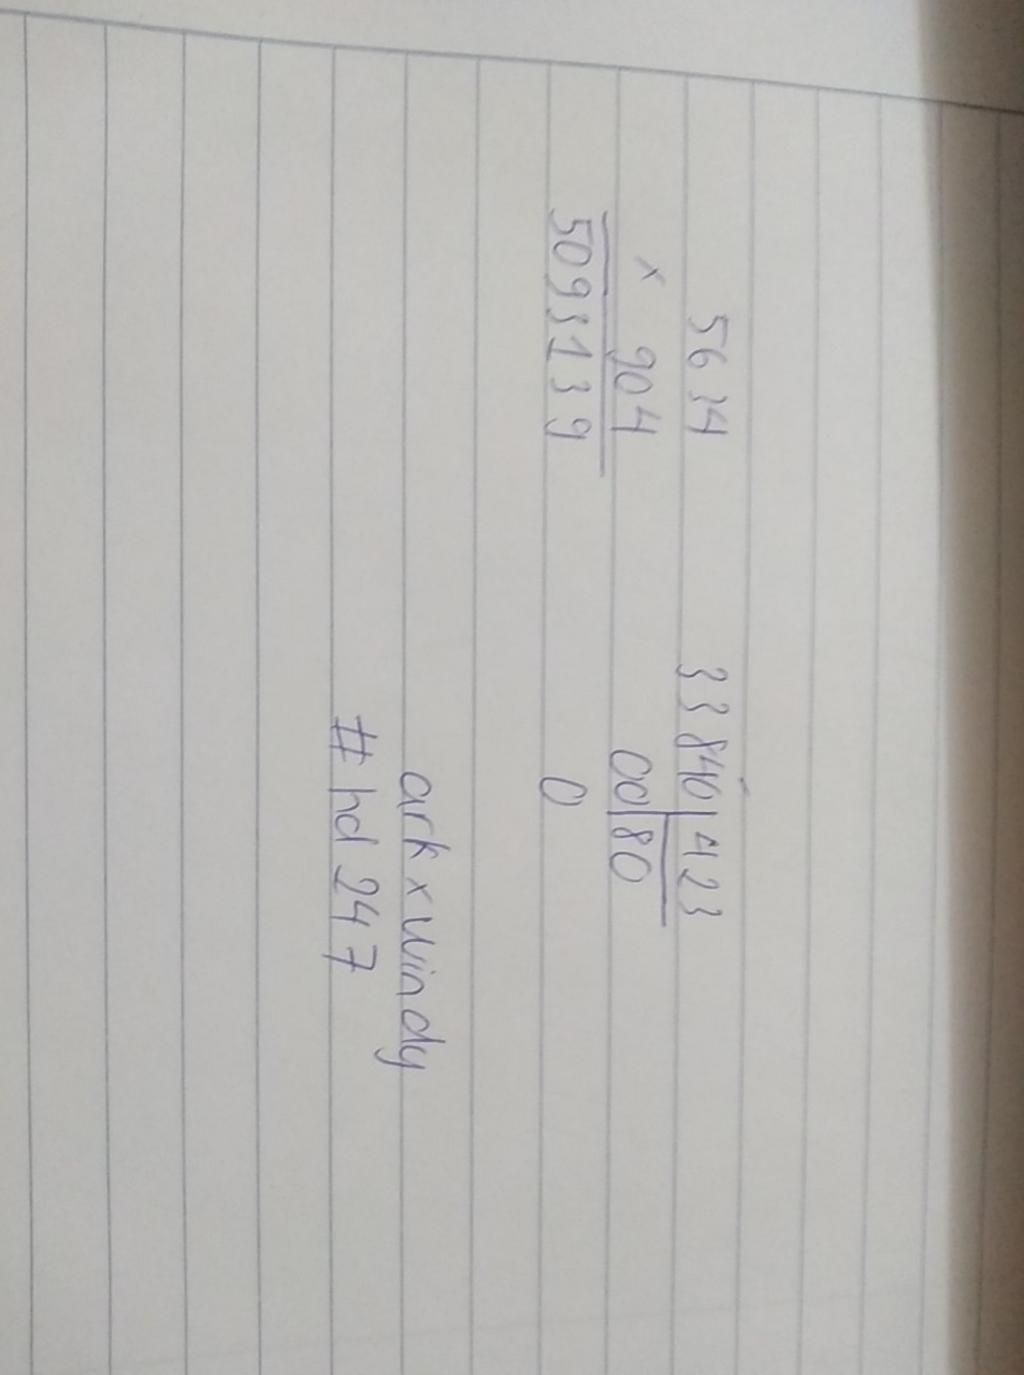 5634
x 904
5093139
33840 423
00 80
0
ark x windy
#hd 247